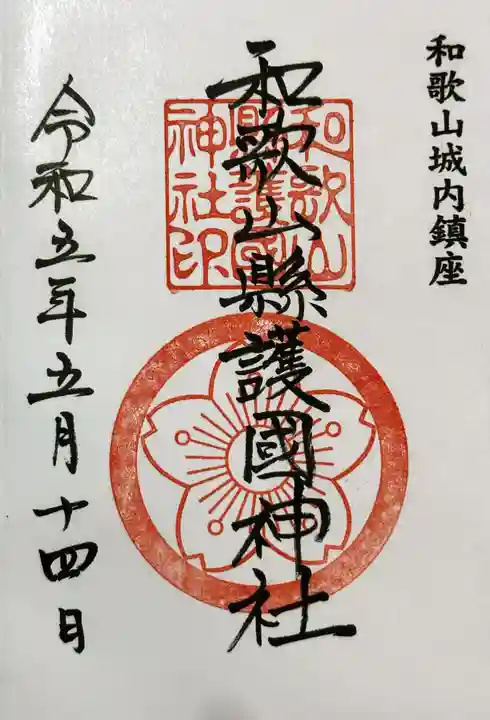 和歌山城内鎮座
和歌山縣護國神社
和歌山
縣護國
神社印
令和五年五月十四日